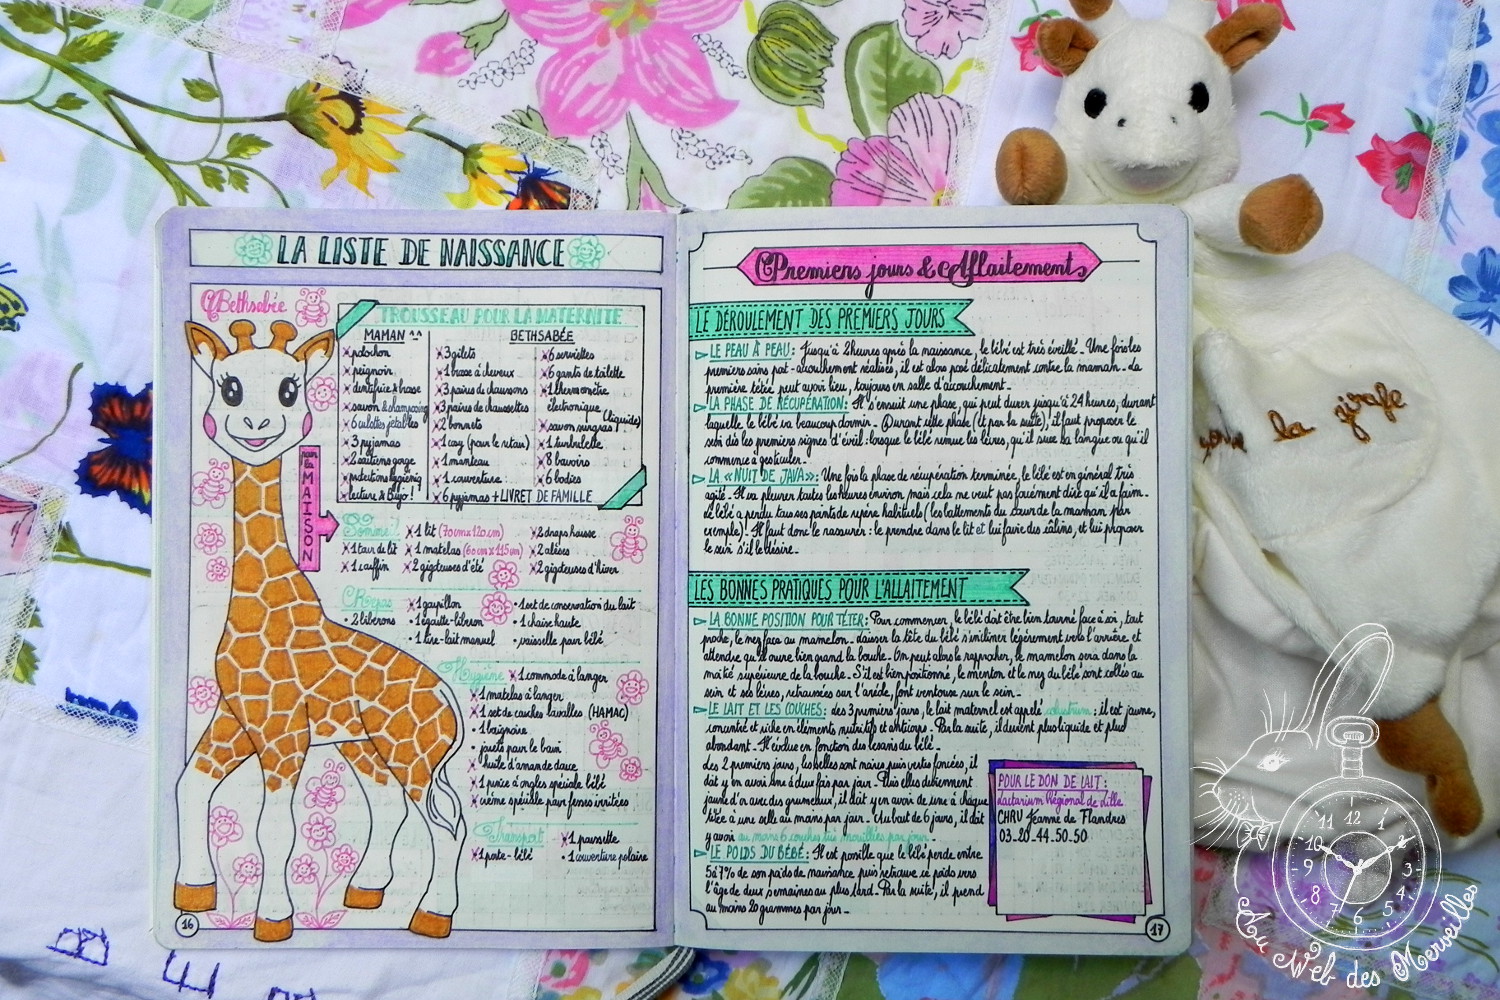 LA LISTE DE NAISSANCE
Bethsabée
TROUSSEAU POUR LA MATERNITE
MAMAN ^^
polochon
peignoir
dentifrice & brosse
savon & shampoing
6 culottes jetables
3 pyjamas
2 soutiens gorge
protections hygiéniq
lecture & Bujo !
BETHSABÉE
3 gilets
1 brosse à cheveux
3 paires de chaussons
3 paires de chaussettes
2 bonnets
1 cosy (pour le retour)
1 manteau
1 couverture
6 pyjamas + LIVRET DE FAMILLE
6 serviettes
6 gants de toilette
1 thermomètre
électronique
savon surgras (liquide)
1 turbulette
8 bavoirs
6 bodies
pour la
MAISON
1 lit (70cm x 120cm)
2 draps housse
1 tour de lit
1 matelas (60cm x 115cm)
2 alèses
1 couffin
2 gigoteuses d'été
2 gigoteuses d'hiver
Repas
1 goupillon
• 1 set de conservation du lait
• 2 biberons
1 égoutte-biberon
• 1 chaise haute
1 tire-lait manuel
• vaisselle pour bébé
Hygiène
1 commode à langer
1 matelas à langer
1 set de couches lavables (HAMAC)
1 baignoire
• jouets pour le bain
huile d'amande douce
1 pince à ongles spéciale bébé
crème spéciale pour fesses irritées
Transport
1 poussette
1 porte-bébé
• 1 couverture polaire
16
Premiers jours & Allaitement
LE DÉROULEMENT DES PREMIERS JOURS
LE PEAU À PEAU : Jusqu'à 2 heures après la naissance, le bébé est très éveillé. Une fois les
premiers soins post-accouchement réalisés, il est alors posé délicatement contre la maman. La
première tétée peut avoir lieu, toujours en salle d'accouchement.
LA PHASE DE RÉCUPÉRATION : Il s'ensuit une phase, qui peut durer jusqu'à 24 heures, durant
laquelle le bébé va beaucoup dormir. Durant cette phase (et par la suite), il faut proposer le
sein dès les premiers signes d'éveil : lorsque le bébé remue les lèvres, qu'il suce sa langue ou qu'il
commence à gesticuler.
LA «NUIT DE JAVA» : Une fois la phase de récupération terminée, le bébé est en général très
agité. Il va pleurer toutes les heures environ mais cela ne veut pas forcément dire qu'il a faim.
Le bébé a perdu tous ses points de repère habituels (les battements du cœur de la maman par
exemple). Il faut donc le rassurer : le prendre dans le lit et lui faire des câlins, et lui proposer
le sein s'il le désire.
LES BONNES PRATIQUES POUR L'ALLAITEMENT
LA BONNE POSITION POUR TÉTER : Pour commencer, le bébé doit être bien tourné face à soi, tout
proche, le nez face au mamelon. Laisser la tête du bébé s'incliner légèrement vers l'arrière et
attendre qu'il ouvre bien grand la bouche. On peut alors le rapprocher, le mamelon sera dans la
moitié supérieure de la bouche. S'il est bien positionné, le menton et le nez du bébé sont collés au
sein et ses lèvres, retroussées sur l'aréole, font ventouse sur le sein.
LE LAIT ET LES COUCHES : Les 3 premiers jours, le lait maternel est appelé colostrum : il est jaune,
concentré et riche en éléments nutritifs et anticorps. Par la suite, il devient plus liquide et plus
abondant. Il évolue en fonction des besoins du bébé.
Les 2 premiers jours, les selles sont noires puis vertes foncées, il
doit y en avoir une à deux fois par jour. Puis elles deviennent
jaune d'or avec des grumeaux, il doit y en avoir de une à chaque
tétée à une selle au moins par jour. Au bout de 6 jours, il doit
y avoir au moins 6 couches très mouillées par jour.
LE POIDS DU BÉBÉ : Il est possible que le bébé perde entre
5 à 7% de son poids de naissance puis retrouve ce poids vers
l'âge de deux semaines au plus tard. Par la suite, il prend
au moins 20 grammes par jour.
POUR LE DON DE LAIT :
Lactarium Régional de Lille
CHRU Jeanne de Flandres
03.20.44.50.50
17
la girafe
11 12 1
10 2
9 3
8 4
7 6 5
Au Web des Merveilles